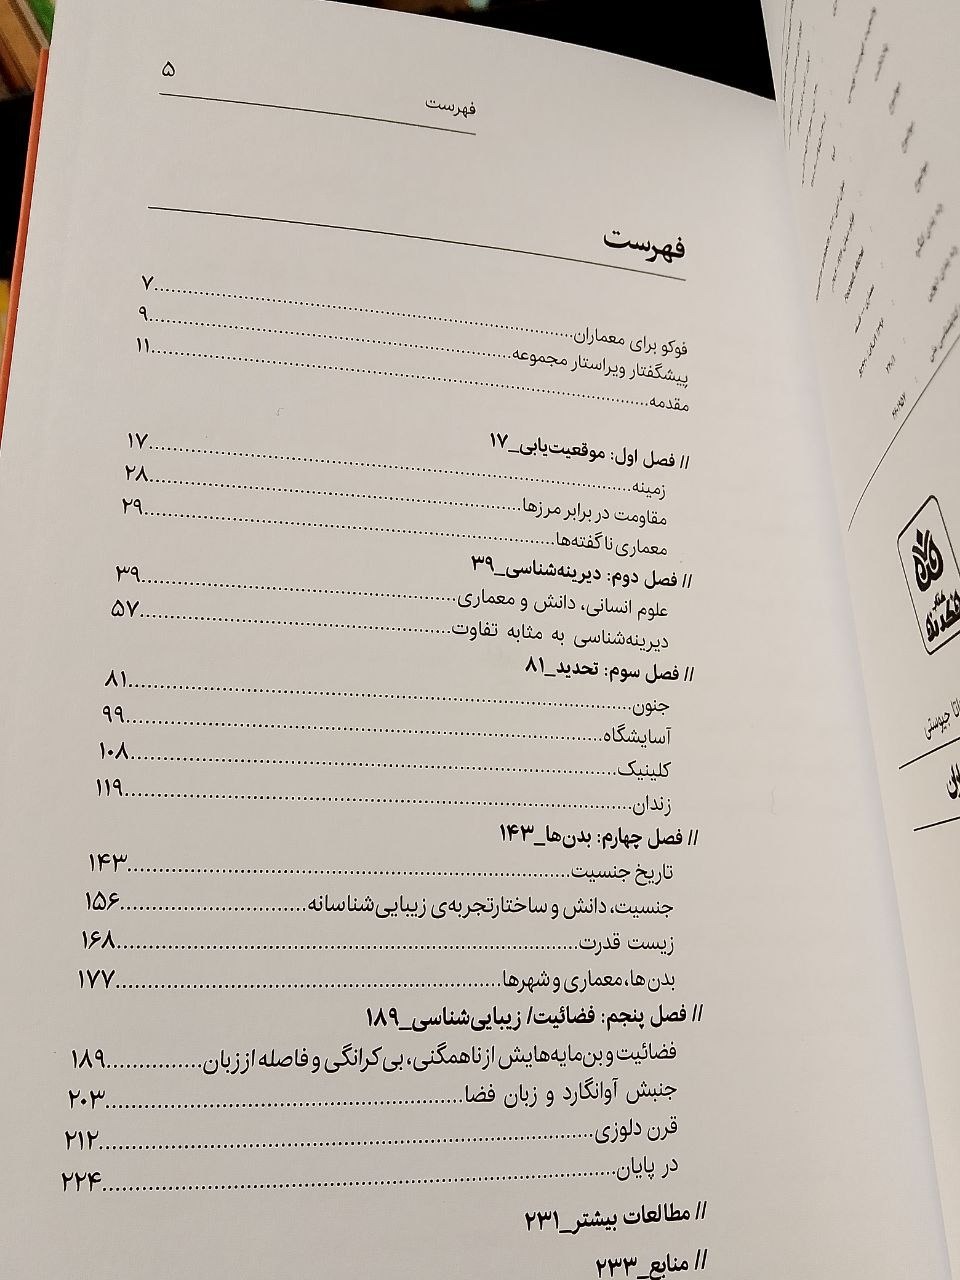 ۵
فهرست
فهرست
فوکو برای معماران ۷
پیشگفتار ویراستار مجموعه ۹
مقدمه ۱۱
// فصل اول: موقعیت‌یابی_۱۷
زمینه ۱۷
مقاومت در برابر مرزها ۲۸
معماری ناگفته‌ها ۲۹
// فصل دوم: دیرینه‌شناسی_۳۹
علوم انسانی، دانش و معماری ۳۹
دیرینه‌شناسی به مثابه تفاوت ۵۷
// فصل سوم: تحدید_۸۱
جنون ۸۱
آسایشگاه ۹۹
کلینیک ۱۰۸
زندان ۱۱۹
// فصل چهارم: بدن‌ها_۱۴۳
تاریخ جنسیت ۱۴۳
جنسیت، دانش و ساختارتجربه‌ی زیبایی‌شناسانه ۱۵۶
زیست قدرت ۱۶۸
بدن‌ها، معماری و شهرها ۱۷۷
// فصل پنجم: فضائیت/ زیبایی‌شناسی_۱۸۹
فضائیت و بن‌مایه‌هایش از ناهمگنی، بی‌کرانگی و فاصله از زبان ۱۸۹
جنبش آوانگارد و زبان فضا ۲۰۳
قرن دلوزی ۲۱۲
در پایان ۲۲۴
// مطالعات بیشتر_۲۳۱
// منابع_۲۳۳
کتاب
فکرنو